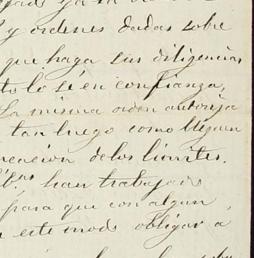 y ordenes dadas sobre
que haga sus diligencias
to lo sé en confianza,
La misma orden autoriza
tan luego como lleguen
cación de los limites.
han trabajado
para que con algun
este modo obligar a